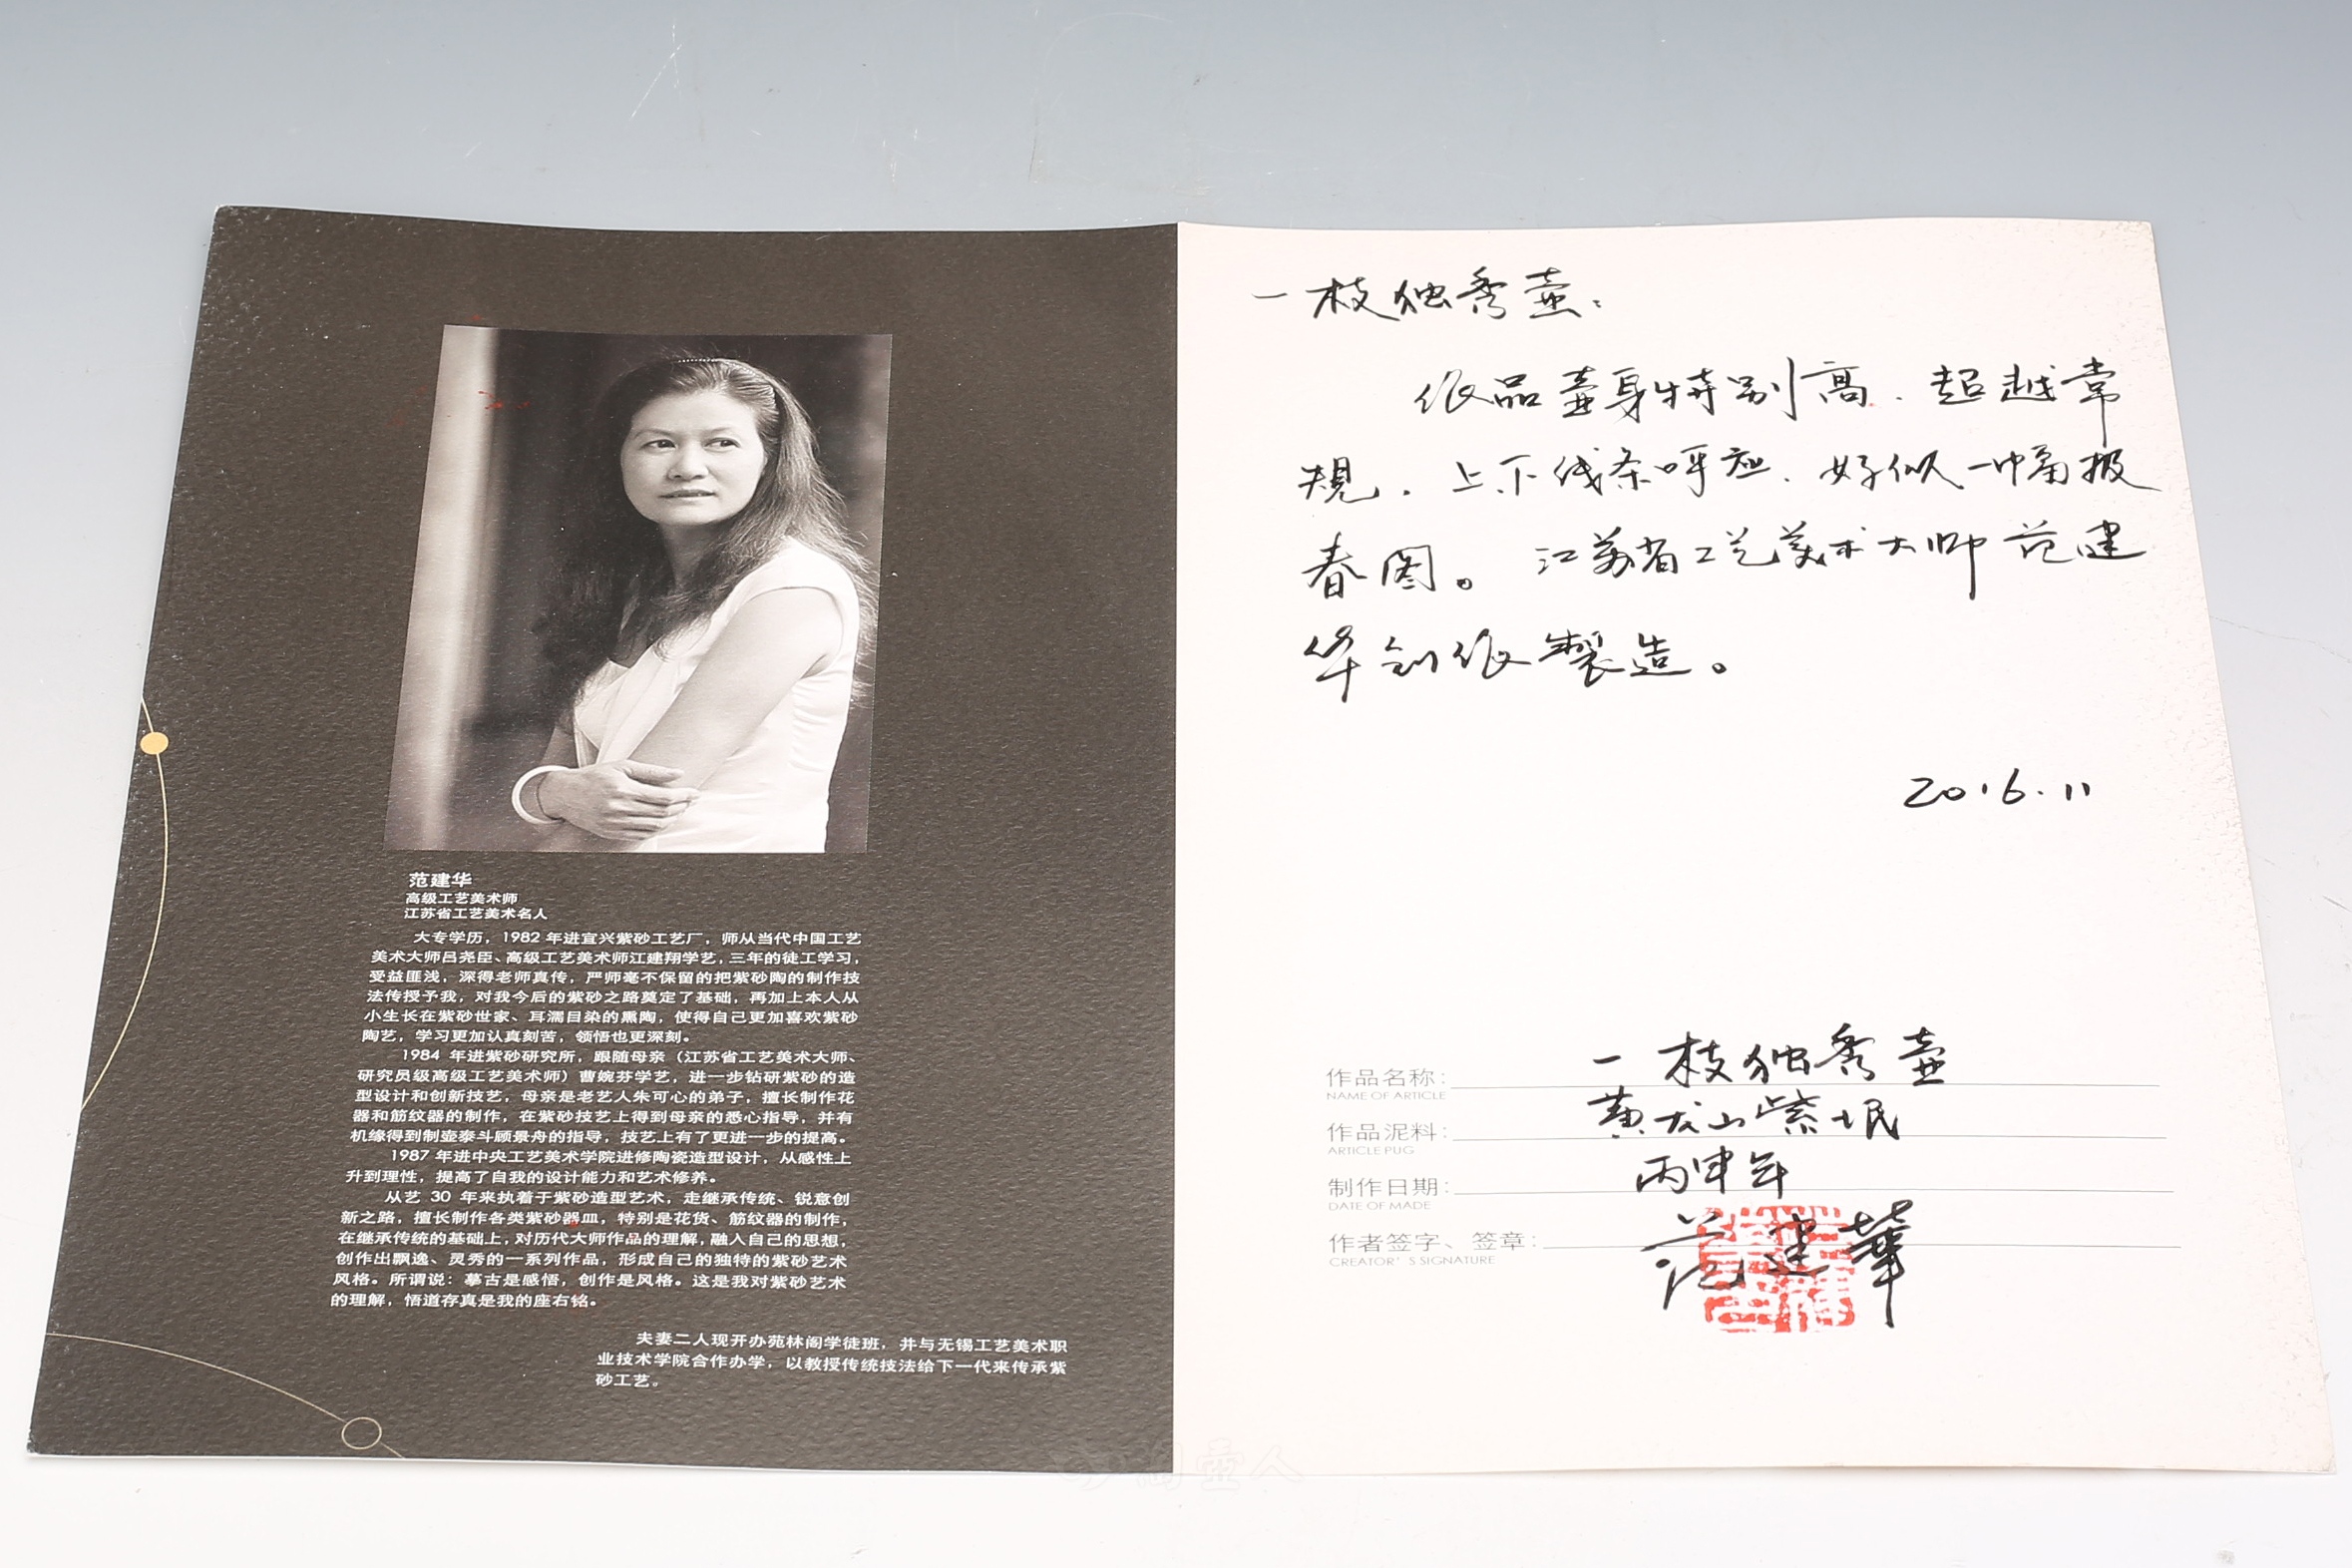 范建华
高级工艺美术师
江苏省工艺美术名人
大专学历，1982 年进宜兴紫砂工艺厂，师从当代中国工艺
美术大师吕尧臣、高级工艺美术师江建翔学艺，三年的徒工学习，
受益匪浅，深得老师真传，严师毫不保留的把紫砂陶的制作技
法传授予我，对我今后的紫砂之路奠定了基础，再加上本人从
小生长在紫砂世家、耳濡目染的熏陶，使得自己更加喜欢紫砂
陶艺，学习更加认真刻苦，领悟也更深刻。
1984 年进紫砂研究所，跟随母亲（江苏省工艺美术大师、
研究员级高级工艺美术师）曹婉芬学艺，进一步钻研紫砂的造
型设计和创新技艺，母亲是老艺人朱可心的弟子，擅长制作花
器和筋纹器的制作，在紫砂技艺上得到母亲的悉心指导，并有
机缘得到制壶泰斗顾景舟的指导，技艺上有了更进一步的提高。
1987 年进中央工艺美术学院进修陶瓷造型设计，从感性上
升到理性，提高了自我的设计能力和艺术修养。
从艺 30 年来执着于紫砂造型艺术，走继承传统、锐意创
新之路，擅长制作各类紫砂器皿，特别是花货、筋纹器的制作，
在继承传统的基础上，对历代大师作品的理解，融入自己的思想，
创作出飘逸、灵秀的一系列作品，形成自己的独特的紫砂艺术
风格。所谓说：摹古是感悟，创作是风格。这是我对紫砂艺术
的理解，悟道存真是我的座右铭。
夫妻二人现开办苑林阁学徒班，并与无锡工艺美术职
业技术学院合作办学，以教授传统技法给下一代来传承紫
砂工艺。
一枝独秀壶：
作品壶身特别高，超越常
规，上下线条呼应，好似一幅报
春图。江苏省工艺美术大师范建
华创作製造。
2016.11
作品名称： 一枝独秀壶
NAME OF ARTICLE
作品泥料： 黄龙山紫泥
ARTICLE PUG
制作日期： 丙申年
DATE OF MADE
作者签字、签章： 范建華
CREATOR'S SIGNATURE